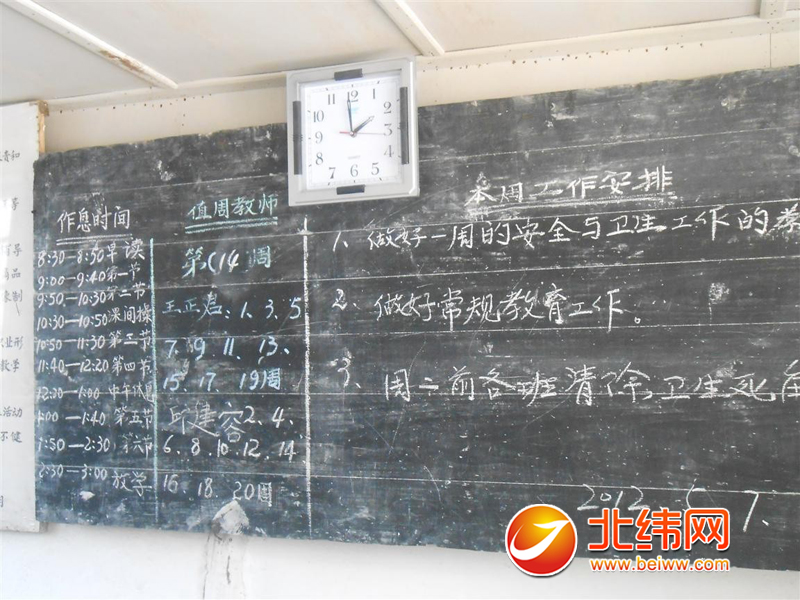 作息时间
8:30—8:50早读
9:00—9:40第一节
9:50—10:30第二节
10:30—10:50课间操
10:50—11:30第三节
11:40—12:20第四节
12:20—1:00中午休息
1:00—1:40第五节
1:50—2:30第六节
2:30—3:00放学
值周教师
第(14)周
王正君:1.3.5
7.9.11.13.
15.17.19周
邱建容2.4.
6.8.10.12.14
16.18.20周
12
1
2
3
4
5
6
7
8
9
10
11
本周工作安排
1、做好一周的安全与卫生工作的
2、做好常规教育工作。
3、周二前各班清除卫生死角
2012.5.7.
北纬网
www.beiww.com
贵和
等
商品
来制
业形
教学
活动
不健